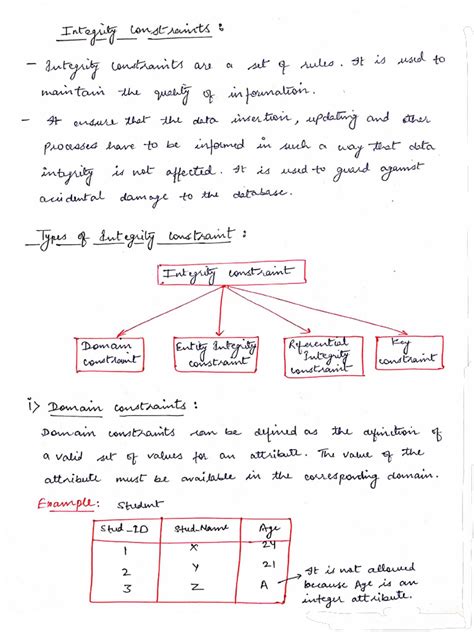 Integrity Constraints :
- Integrity constraints are a set of rules. It is used to
maintain the quality of information.
- It ensure that the data insertion, updating and other
processes have to be informed in such a way that data
integrity is not affected. It is used to guard against
accidental damage to the database.
Types of Integrity constraint :
Integrity constraint
Domain constraint
Entity Integrity constraint
Referential Integrity constraint
Key constraint
i) Domain constraints :
Domain constraints can be defined as the definition of
a valid set of values for an attribute. The value of the
attribute must be available in the corresponding domain.
Example: Student
Stud_ID Stud_Name Age
1 X 24
2 Y 21
3 Z A
It is not allowed
because Age is an
integer attribute.